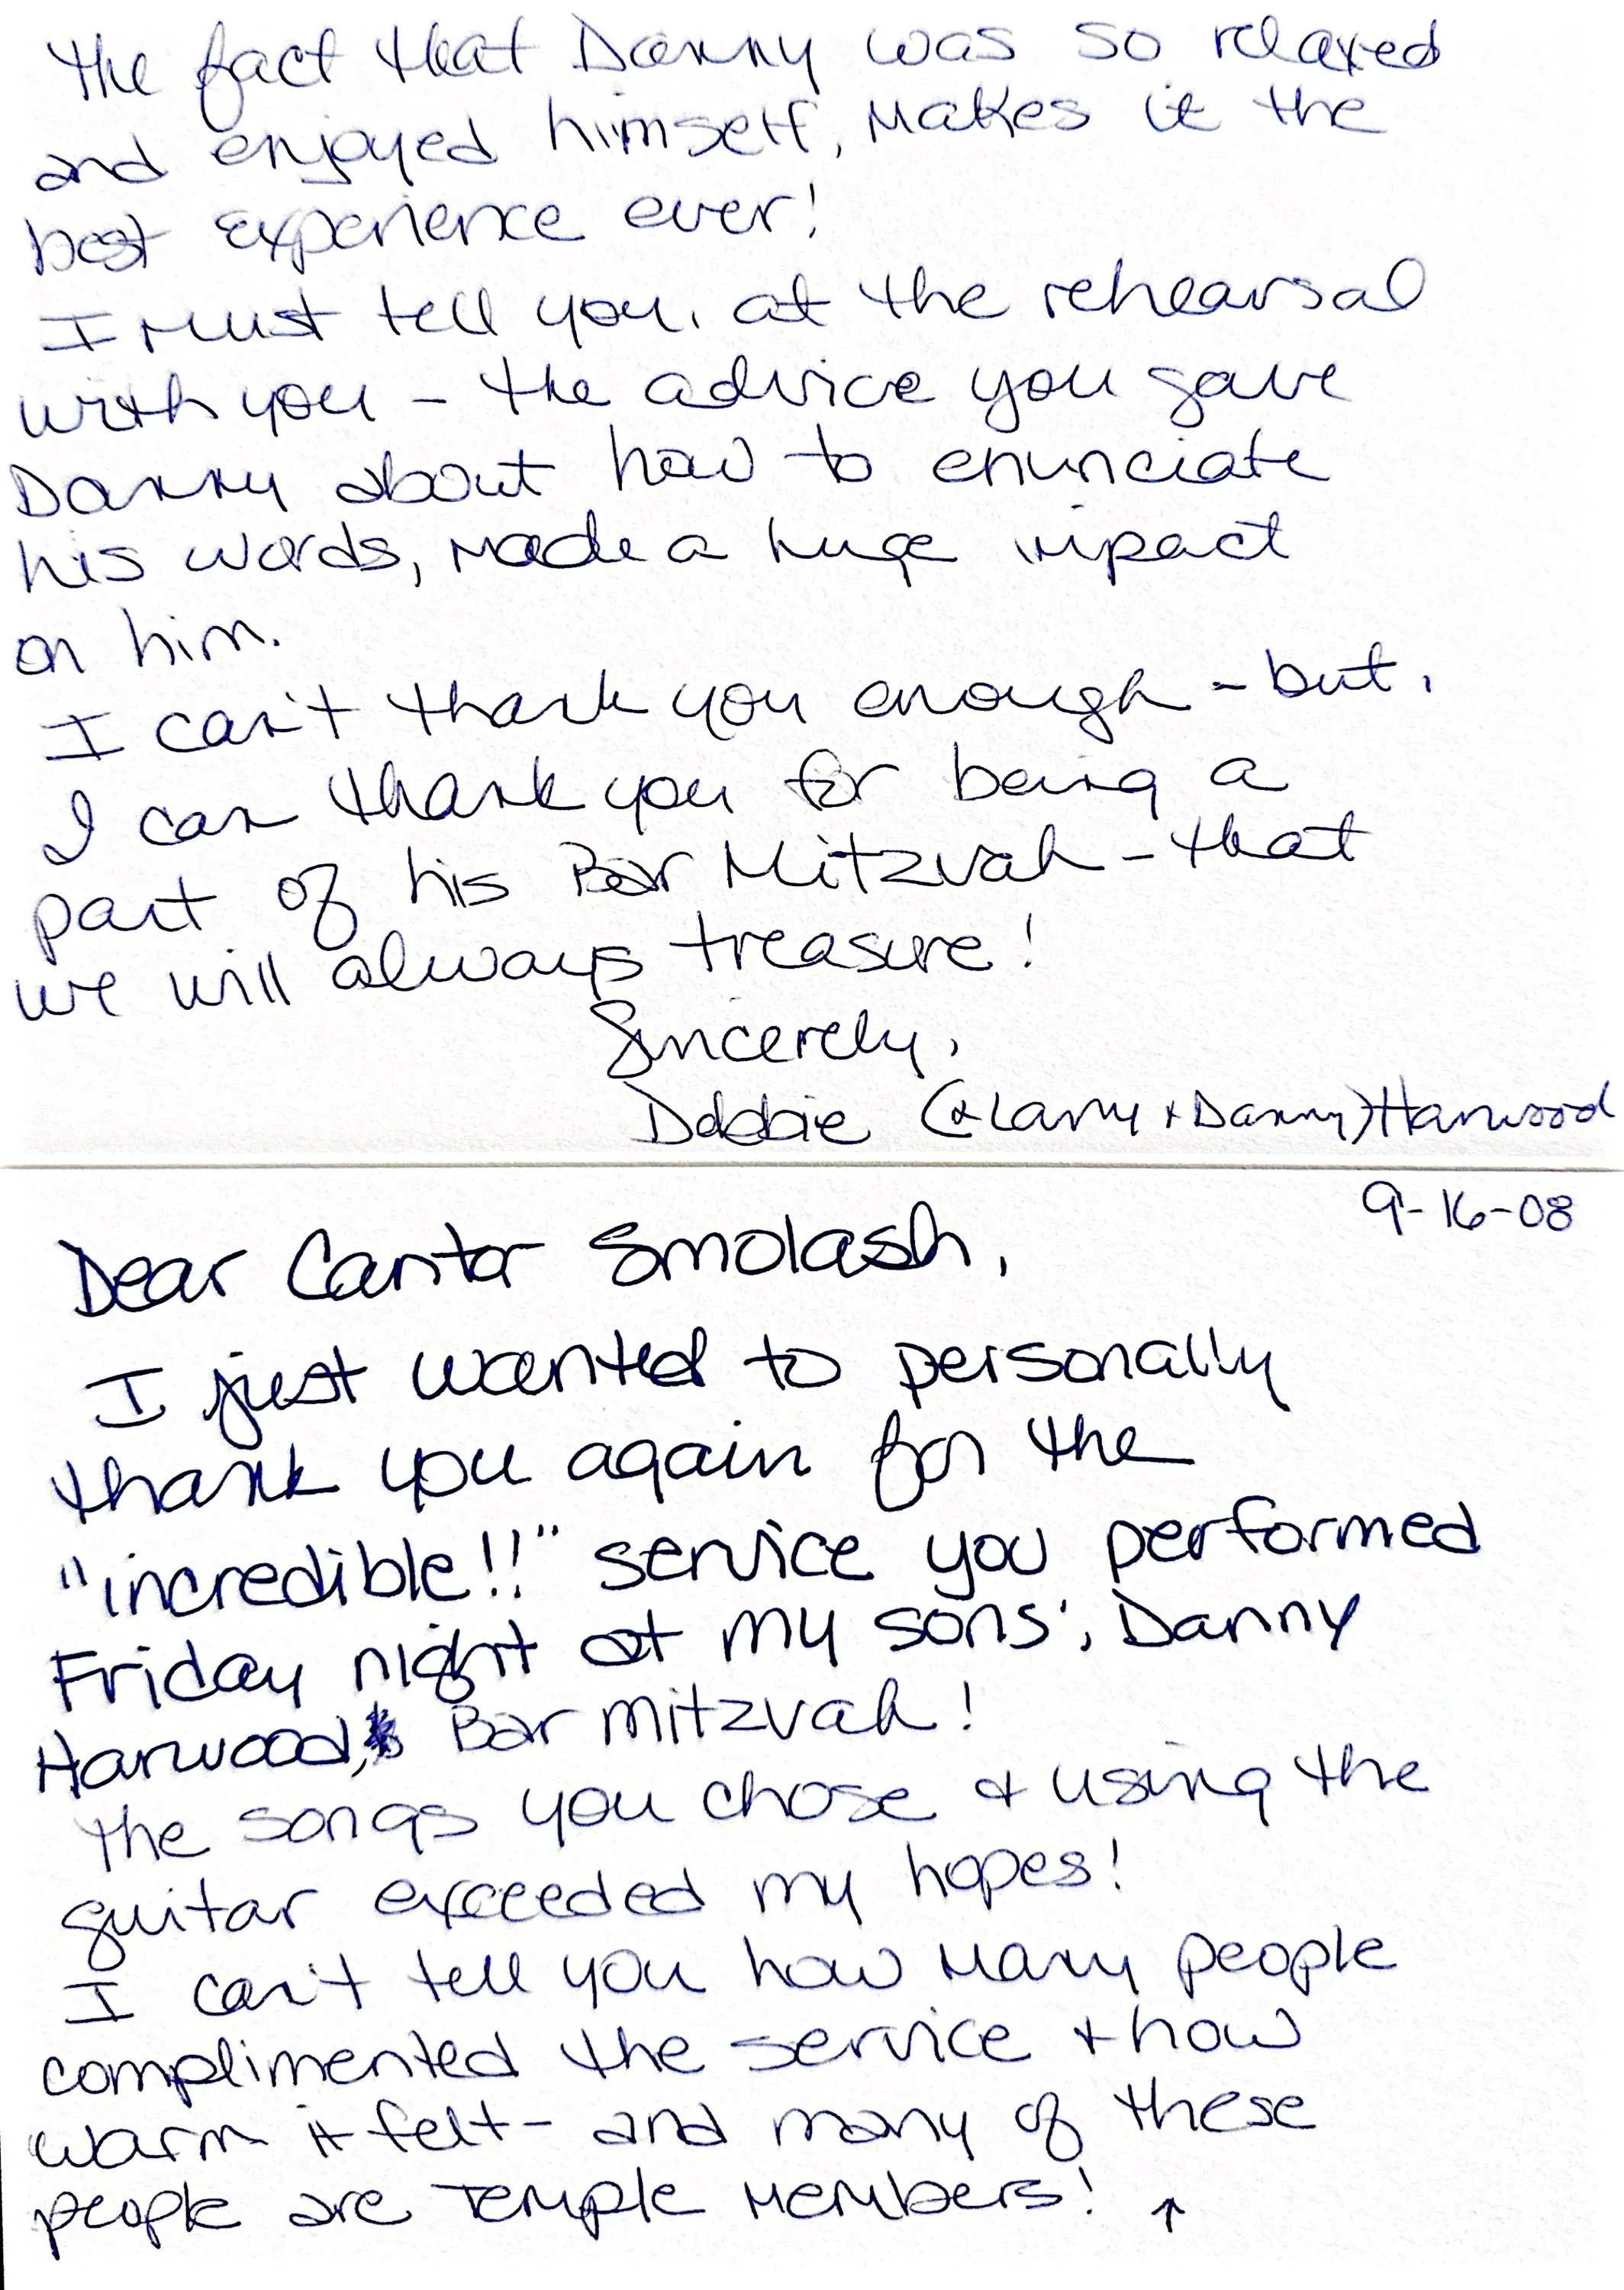 9-16-08
Dear Cantor Smolash,
I just wanted to personally
thank you again for the
"incredible!!" service you performed
Friday night at my sons', Danny
Harwood, Bar mitzvah!
The songs you chose & using the
guitar exceeded my hopes!
I can't tell you how many people
complimented the service & how
warm it felt - and many of these
people are Temple members! ↑
The fact that Danny was so relaxed
and enjoyed himself, makes it the
best experience ever!
I must tell you, at the rehearsal
with you - the advice you gave
Danny about how to enunciate
his words, made a huge impact
on him.
I can't thank you enough - but,
I can thank you for being a
part of his Bar Mitzvah - that
we will always treasure!
Sincerely,
Debbie (& Larry & Danny) Harwood